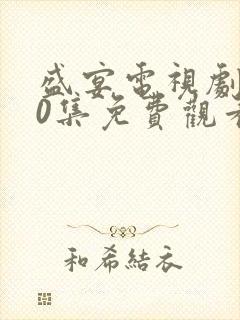 盛宴電視劇
0集免費觀看
和希結衣